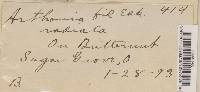 Arthonia
414
radiata
On Butternut
Sugar Grove, O
1-28-93
B.